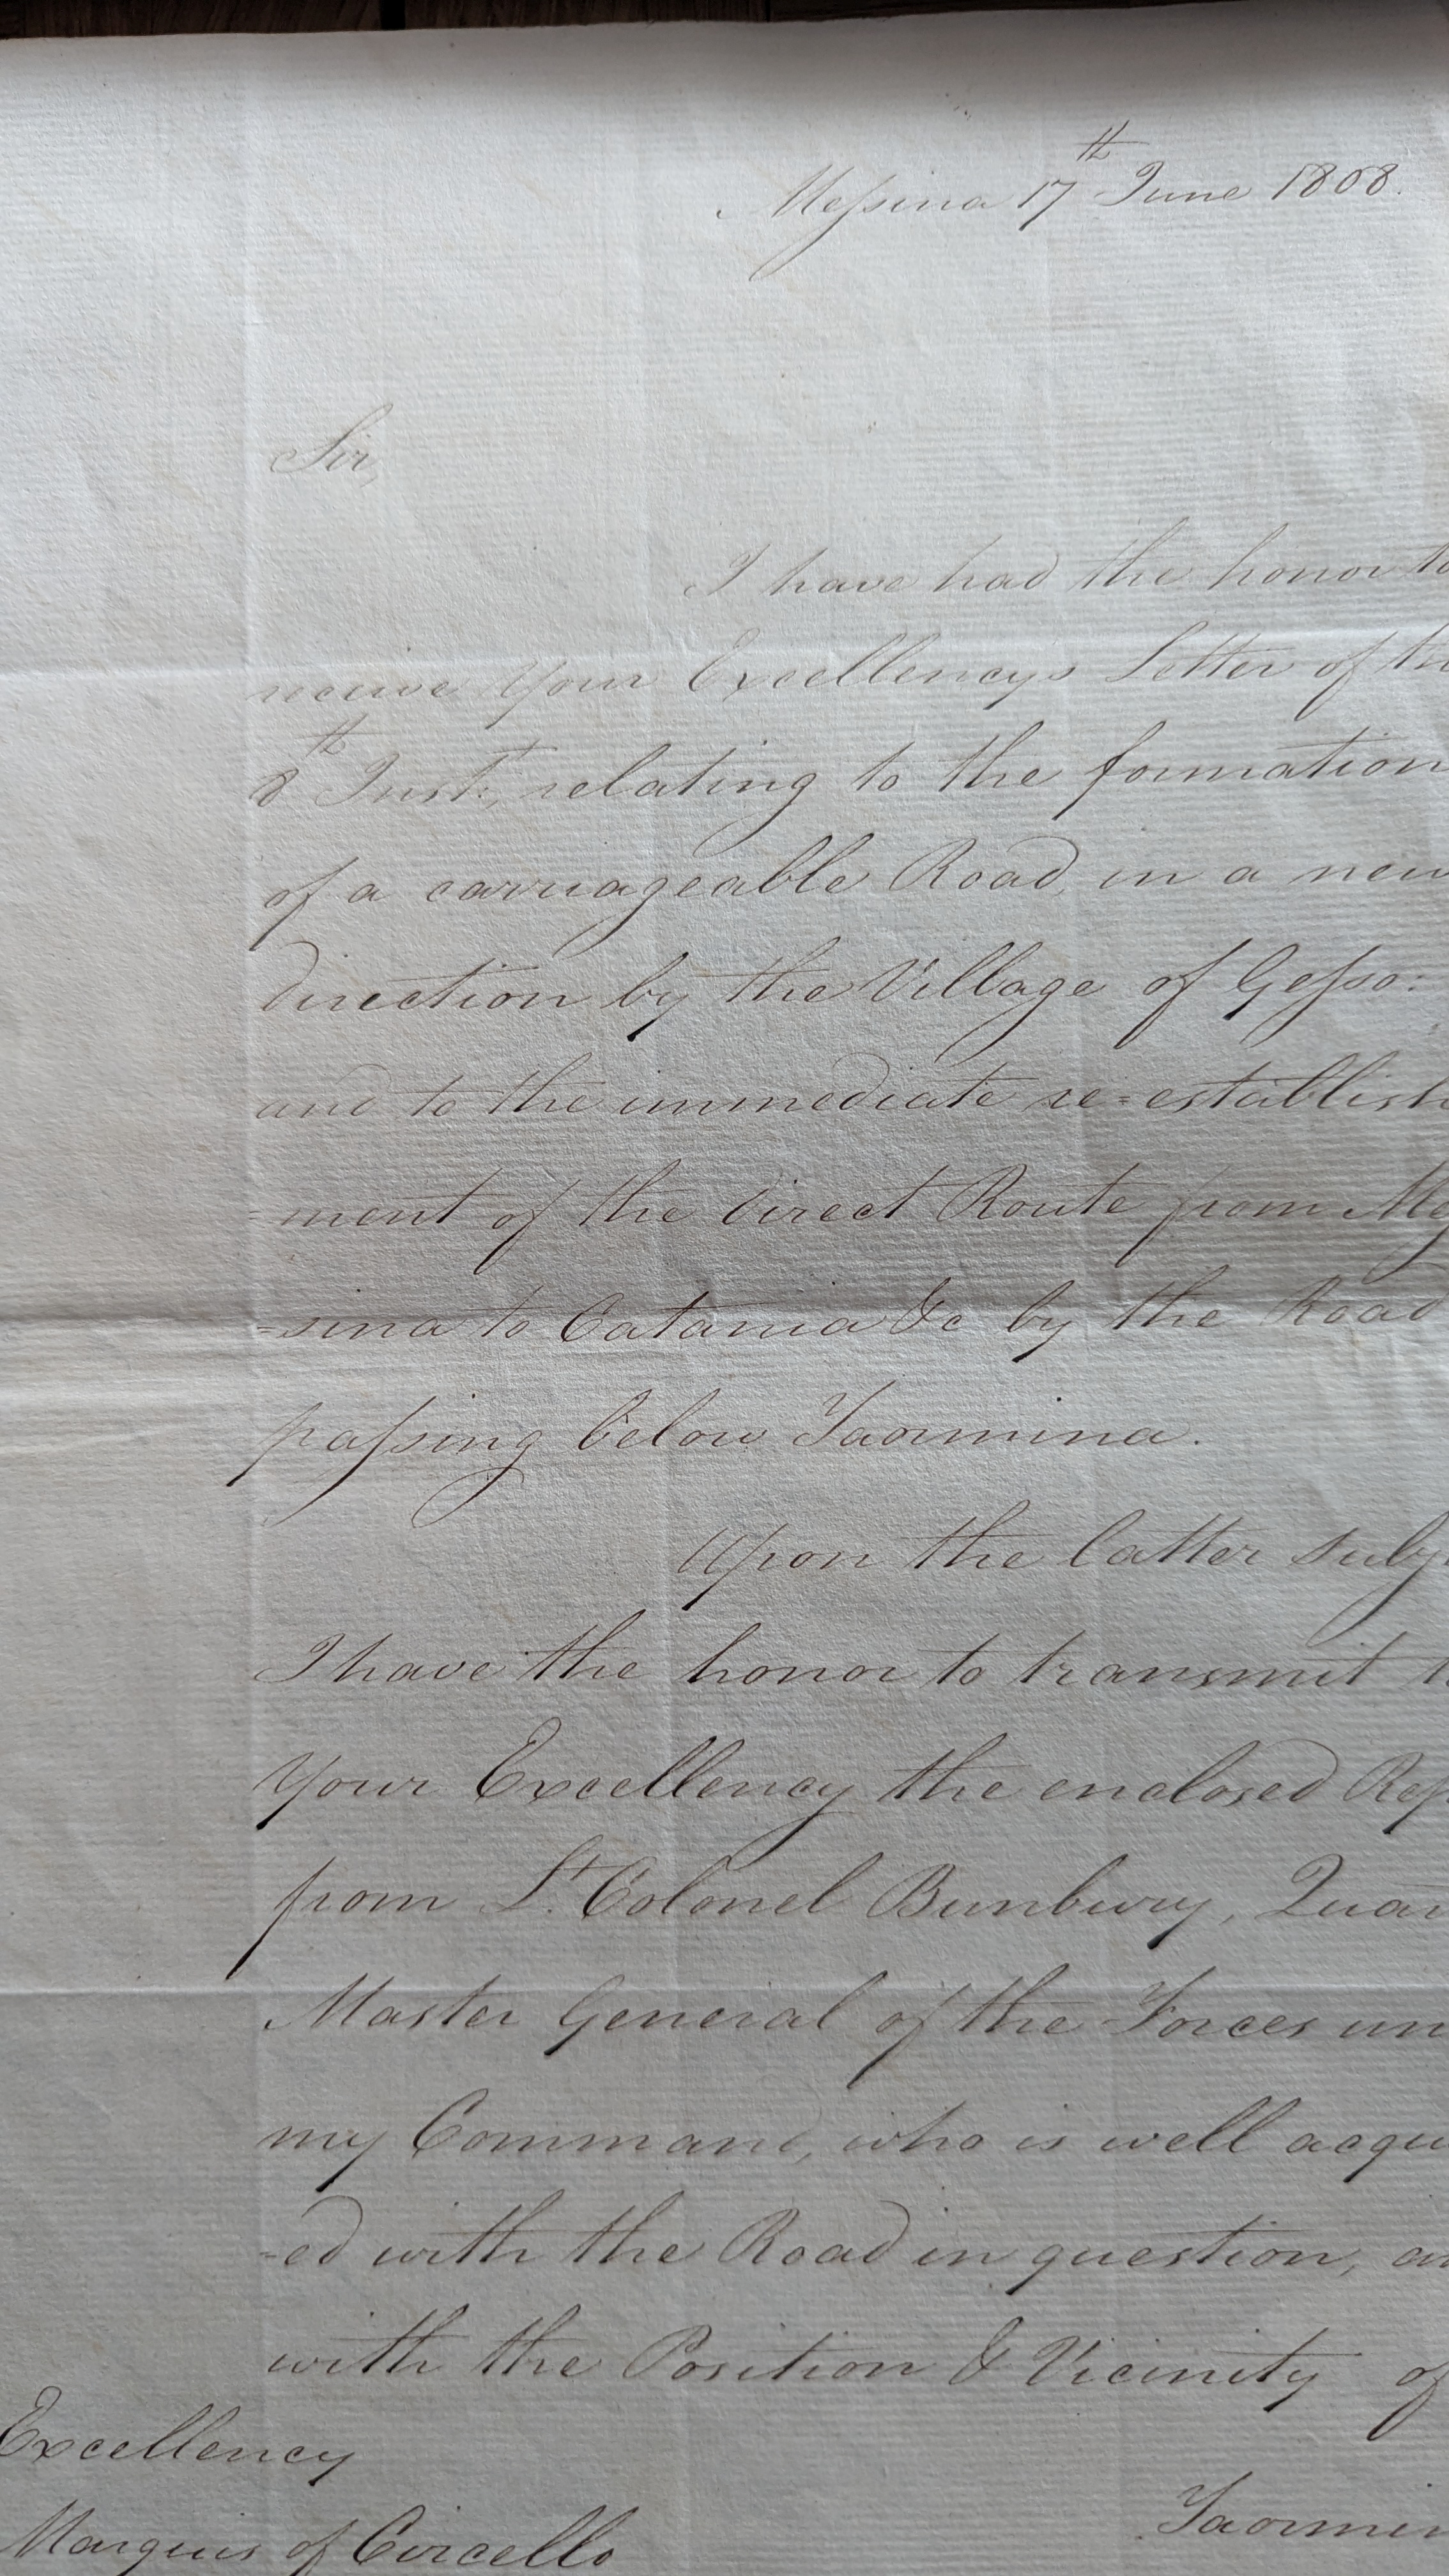 Messina 17th June 1808.
Sir,
I have had the honor to
receive Your Excellency's Letter of the
8th Inst., relating to the formation
of a carriageable Road, in a new
direction by the Village of Gesso:
and to the immediate re=establish
=ment of the direct Route from Mes
=sina to Catania &c by the Road
passing below Taormina.
Upon the latter subj
I have the honor to transmit to
Your Excellency the enclosed Rep
from Lt. Colonel Bunbury, Quar
Master General of the Forces un
my Command, who is well acqu
=ed with the Road in question, an
with the Position & Vicinity of
Excellency
Marquis of Circello
Taormin